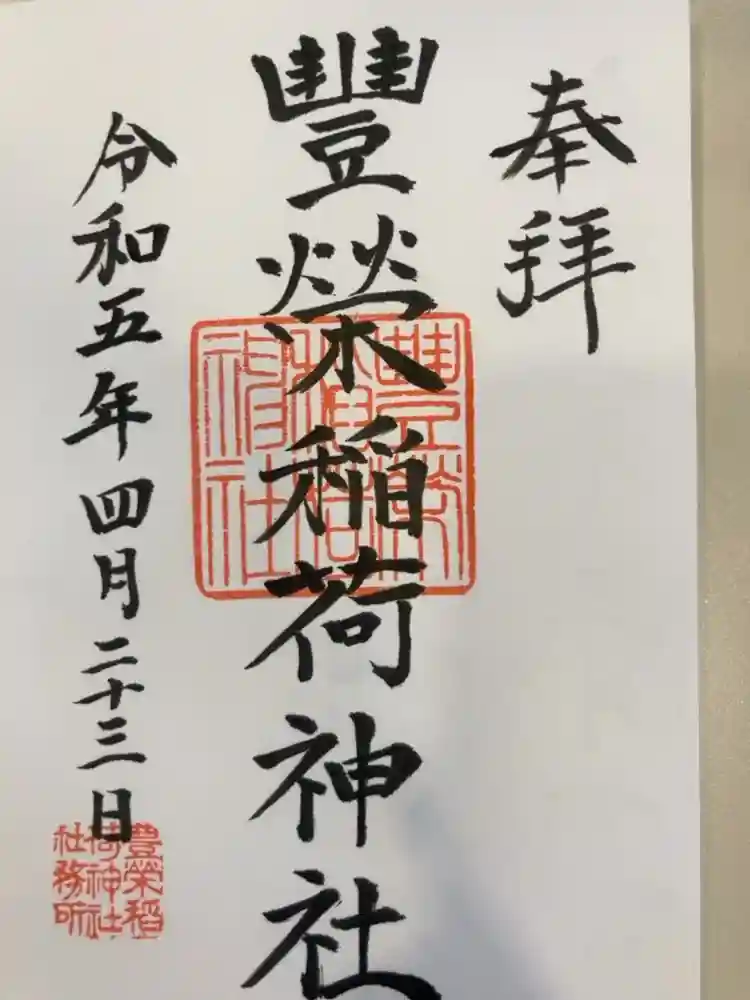 奉拝
豐榮稲荷神社
豊榮稲荷神社
令和五年四月二十三日
豊榮稲
荷神社
社務所